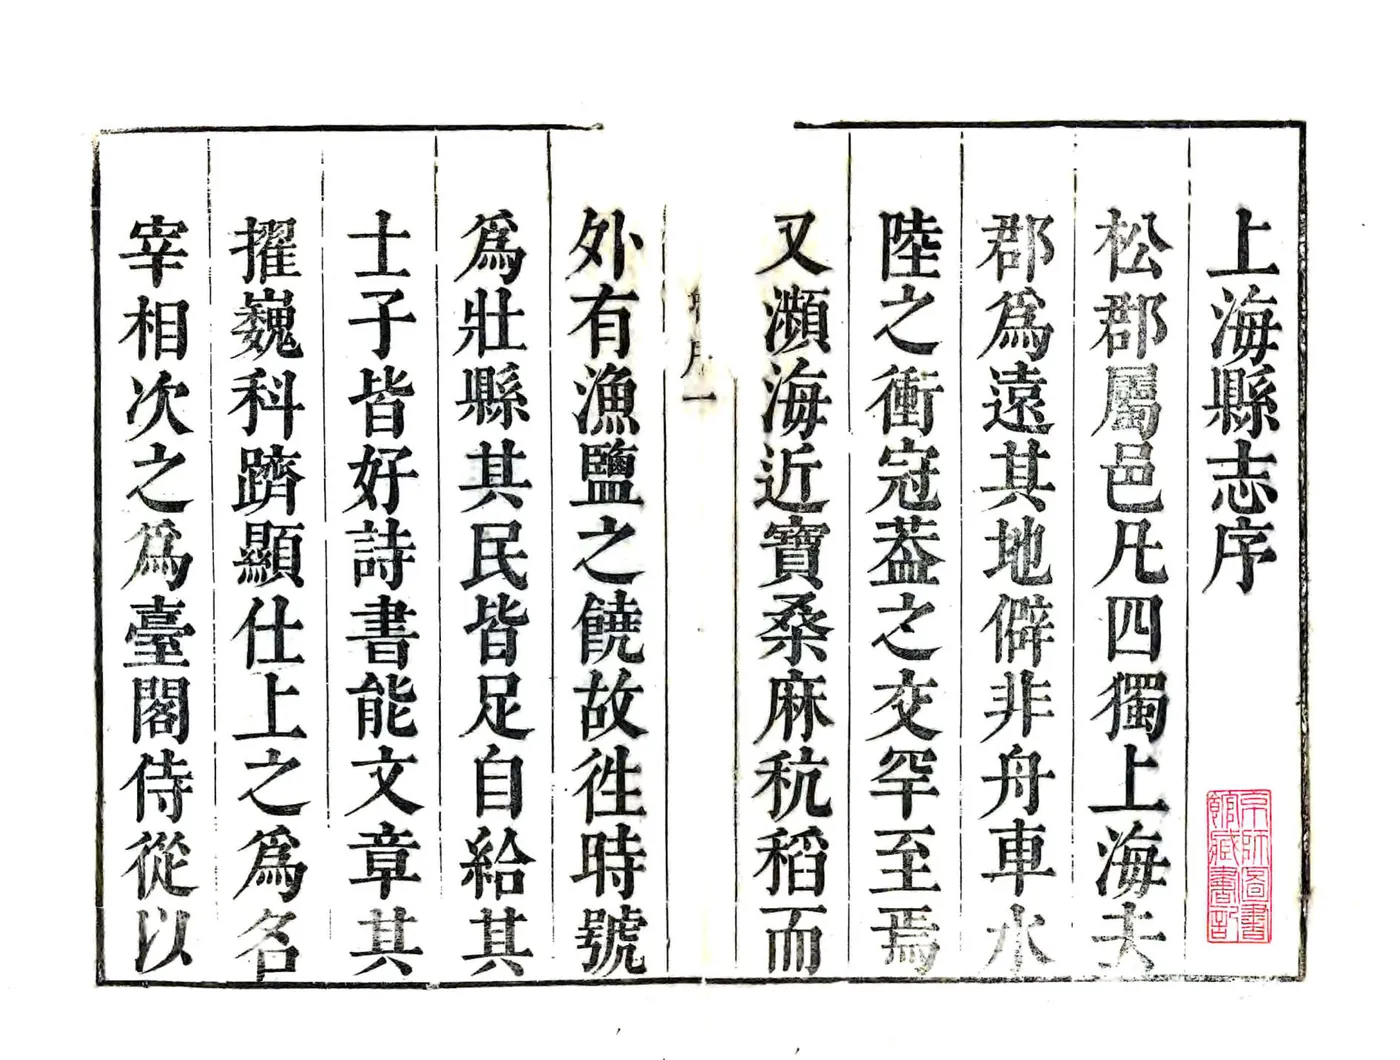 上海縣志序
松郡屬邑凡四獨上海去
郡爲遠其地僻非舟車水
陸之衝冠葢之交罕至焉
又瀕海近寶桑麻秔稻而
外有漁鹽之饒故徃時號
爲壯縣其民皆足自給其
士子皆好詩書能文章其
擢巍科躋顯仕上之爲名
宰相次之爲臺閣侍從以
序一
京師圖書
館藏書記